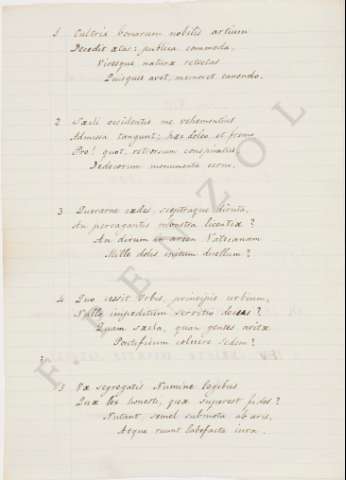 1 Cultrix bonarum nobilis artium
Decedit aetas: publica commoda,
Viresque naturae retectas
Quisquis avet, memoret canendo.
2 Saecli occidentis me vehementius
Admissa tangunt; haec doleo et fremo.
Pro! quot, retrorsum conspicatus,
Dedecorum monumenta cerno.
3 Querarne caedes, sceptraque diruta,
An pervagantis monstra licentiae?
An dirum in arcem Vaticanam
Mille dolis initum duellum?
4 Quo cessit Urbis, principis urbium,
Nullo impeditum servitio decus?
Quam saecla, quam gentes avitae
Pontificum coluere sedem?
5 Vae segregatis Numine legibus
Quae lex honesti, quae superest fides?
Nutant, semel submota ab aris,
Atque ruunt labefacta iura.
F. PENZOL